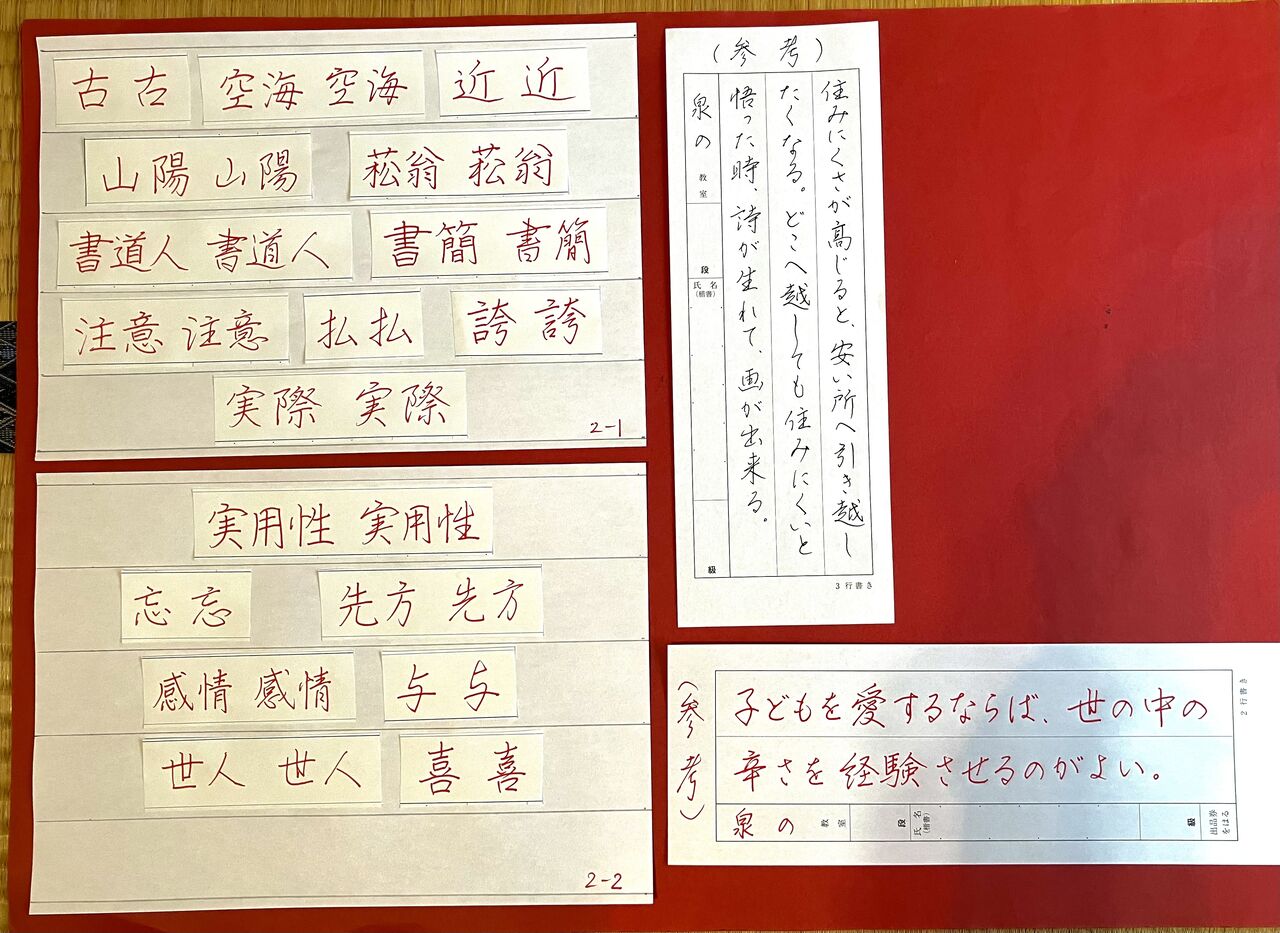 古 古 空海 空海 近 近
山陽 山陽 菘翁 菘翁
書道人 書道人 書簡 書簡
注意 注意 払 払 誇 誇
実際 実際
2-1
実用性 実用性
忘 忘 先方 先方
感情 感情 与 与
世人 世人 喜 喜
2-2
(参考)
住みにくさが高じると、安い所へ引き越し
たくなる。どこへ越しても住みにくいと
悟った時、詩が生れて、画が出来る。
泉の 教室 段 氏名(楷書) 級
3行書き
(参考)
子どもを愛するならば、世の中の
辛さを経験させるのがよい。
泉の 教室 段 氏名(楷書) 級 出品券をはる
2行書き